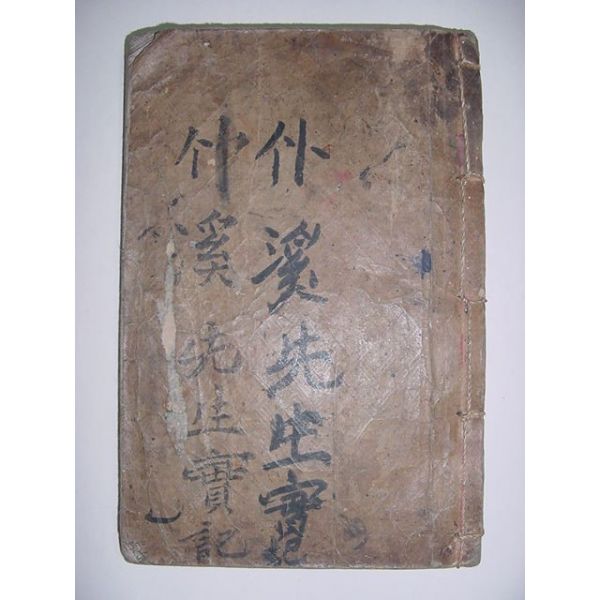 竹溪先生實記
竹溪先生實記